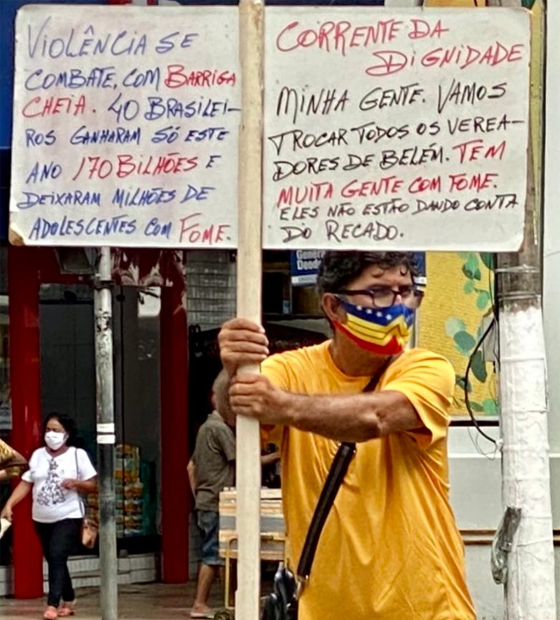 VIOLÊNCIA SE
COMBATE, COM BARRIGA
CHEIA. 40 BRASILEI-
ROS GANHARAM SÓ ESTE
ANO 170 BILHÕES E
DEIXARAM MILHÕES DE
ADOLESCENTES COM FOME.
CORRENTE DA
DIGNIDADE
MINHA GENTE. VAMOS
TROCAR TODOS OS VEREA-
DORES DE BELÉM. TEM
MUITA GENTE COM FOME.
ELES NÃO ESTÃO DANDO CONTA
DO RECADO.